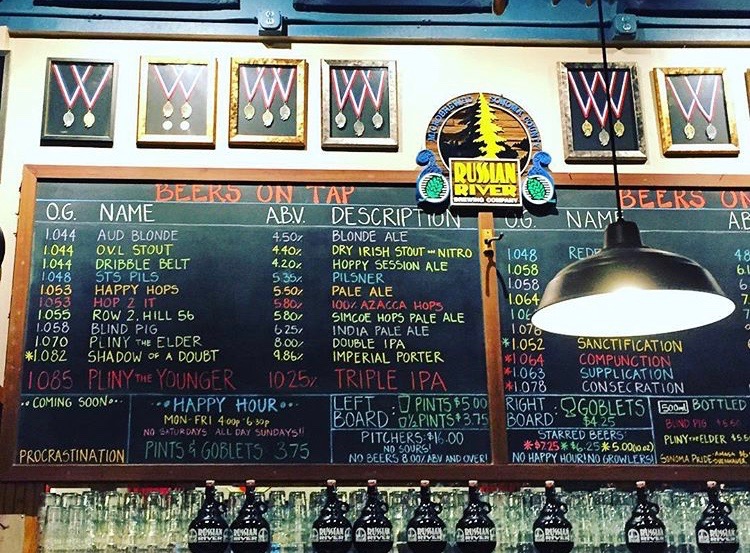 SONOMA COUNTY
RUSSIAN
RIVER
BREWING COMPANY
BEERS ON TAP
O.G. NAME ABV. DESCRIPTION
1.044 AUD BLONDE 4.50% BLONDE ALE
1.044 O.V.L STOUT 4.40% DRY IRISH STOUT - NITRO
1.044 DRIBBLE BELT 4.20% HOPPY SESSION ALE
1.048 STS PILS 5.35% PILSNER
1.053 HAPPY HOPS 5.50% PALE ALE
1.053 HOP 2 IT 5.80% 100% AZACCA HOPS
1.055 ROW 2, HILL 56 5.80% SIMCOE HOPS PALE ALE
1.058 BLIND PIG 6.25% INDIA PALE ALE
1.070 PLINY THE ELDER 8.00% DOUBLE IPA
*1.082 SHADOW OF A DOUBT 9.86% IMPERIAL PORTER
1.085 PLINY THE YOUNGER 10.25% TRIPLE IPA
COMING SOON
PROCRASTINATION
HAPPY HOUR
MON-FRI 4:00P 6:30P
NO SATURDAYS ALL DAY SUNDAYS!!
PINTS & GOBLETS 3.75
LEFT BOARD: PINTS $5.00
½ PINTS $3.75
PITCHERS: $16.00
NO SOURS!
NO BEERS 8.00% ABV AND OVER!
BEERS ON
O.G. NAME AB
1.048
1.058
1.058
1.064
*1.052 SANCTIFICATION
*1.064 COMPUNCTION
*1.063 SUPPLICATION
*1.078 CONSECRATION
RIGHT BOARD: GOBLETS
$4.25
STARRED BEERS:
*$7.25 *$6.25 *5.00 (10 oz)
NO HAPPY HOUR! NO GROWLERS!
500ml BOTTLED
BLIND PIG
PLINY THE ELDER
SONOMA PRIDE
RUSSIAN RIVER
RUSSIAN RIVER
RUSSIAN RIVER
RUSSIAN RIVER
RUSSIAN RIVER
RUSSIAN RIVER
RUSSIAN RIVER
RUSSIAN RIVER
RUSSIAN RIVER